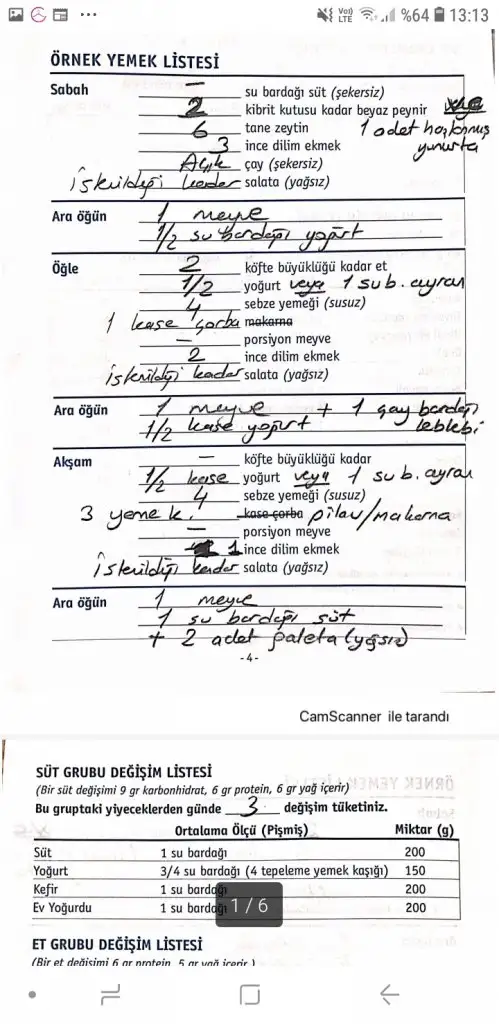 Vo)) LTE %64 13:13
ÖRNEK YEMEK LİSTESİ
Sabah — su bardağı süt (şekersiz)
2 kibrit kutusu kadar beyaz peynir veya
6 tane zeytin 1 adet haşlanmış
3 ince dilim ekmek yumurta
Açık çay (şekersiz)
İstenildiği kadar salata (yağsız)
Ara öğün 1 meyve
1/2 su bardağı yoğurt
Öğle 2 köfte büyüklüğü kadar et
1/2 yoğurt veya 1 su b. ayran
4 sebze yemeği (susuz)
1 kase çorba makarna
— porsiyon meyve
2 ince dilim ekmek
istenildiği kadar salata (yağsız)
Ara öğün 1 meyve + 1 çay bardağı
1/2 kase yoğurt leblebi
Akşam — köfte büyüklüğü kadar
1/2 kase yoğurt veya 1 su b. ayran
4 sebze yemeği (susuz)
3 yemek k. kase çorba pilav/makarna
— porsiyon meyve
1 ince dilim ekmek
İstenildiği kadar salata (yağsız)
Ara öğün 1 meyve
1 su bardağı süt
+ 2 adet paleta (yağsız)
- 4 -
CamScanner ile tarandı
SÜT GRUBU DEĞİŞİM LİSTESİ
(Bir süt değişimi 9 gr karbonhidrat, 6 gr protein, 6 gr yağ içerir)
Bu gruptaki yiyeceklerden günde 3 değişim tüketiniz.
Ortalama Ölçü (Pişmiş) Miktar (g)
Süt 1 su bardağı 200
Yoğurt 3/4 su bardağı (4 tepeleme yemek kaşığı) 150
Kefir 1 su bardağı 200
Ev Yoğurdu 1 su bardağı 200
1 / 6
ET GRUBU DEĞİŞİM LİSTESİ
(Bir et değişimi 6 gr protein, 5 gr yağ içerir.)